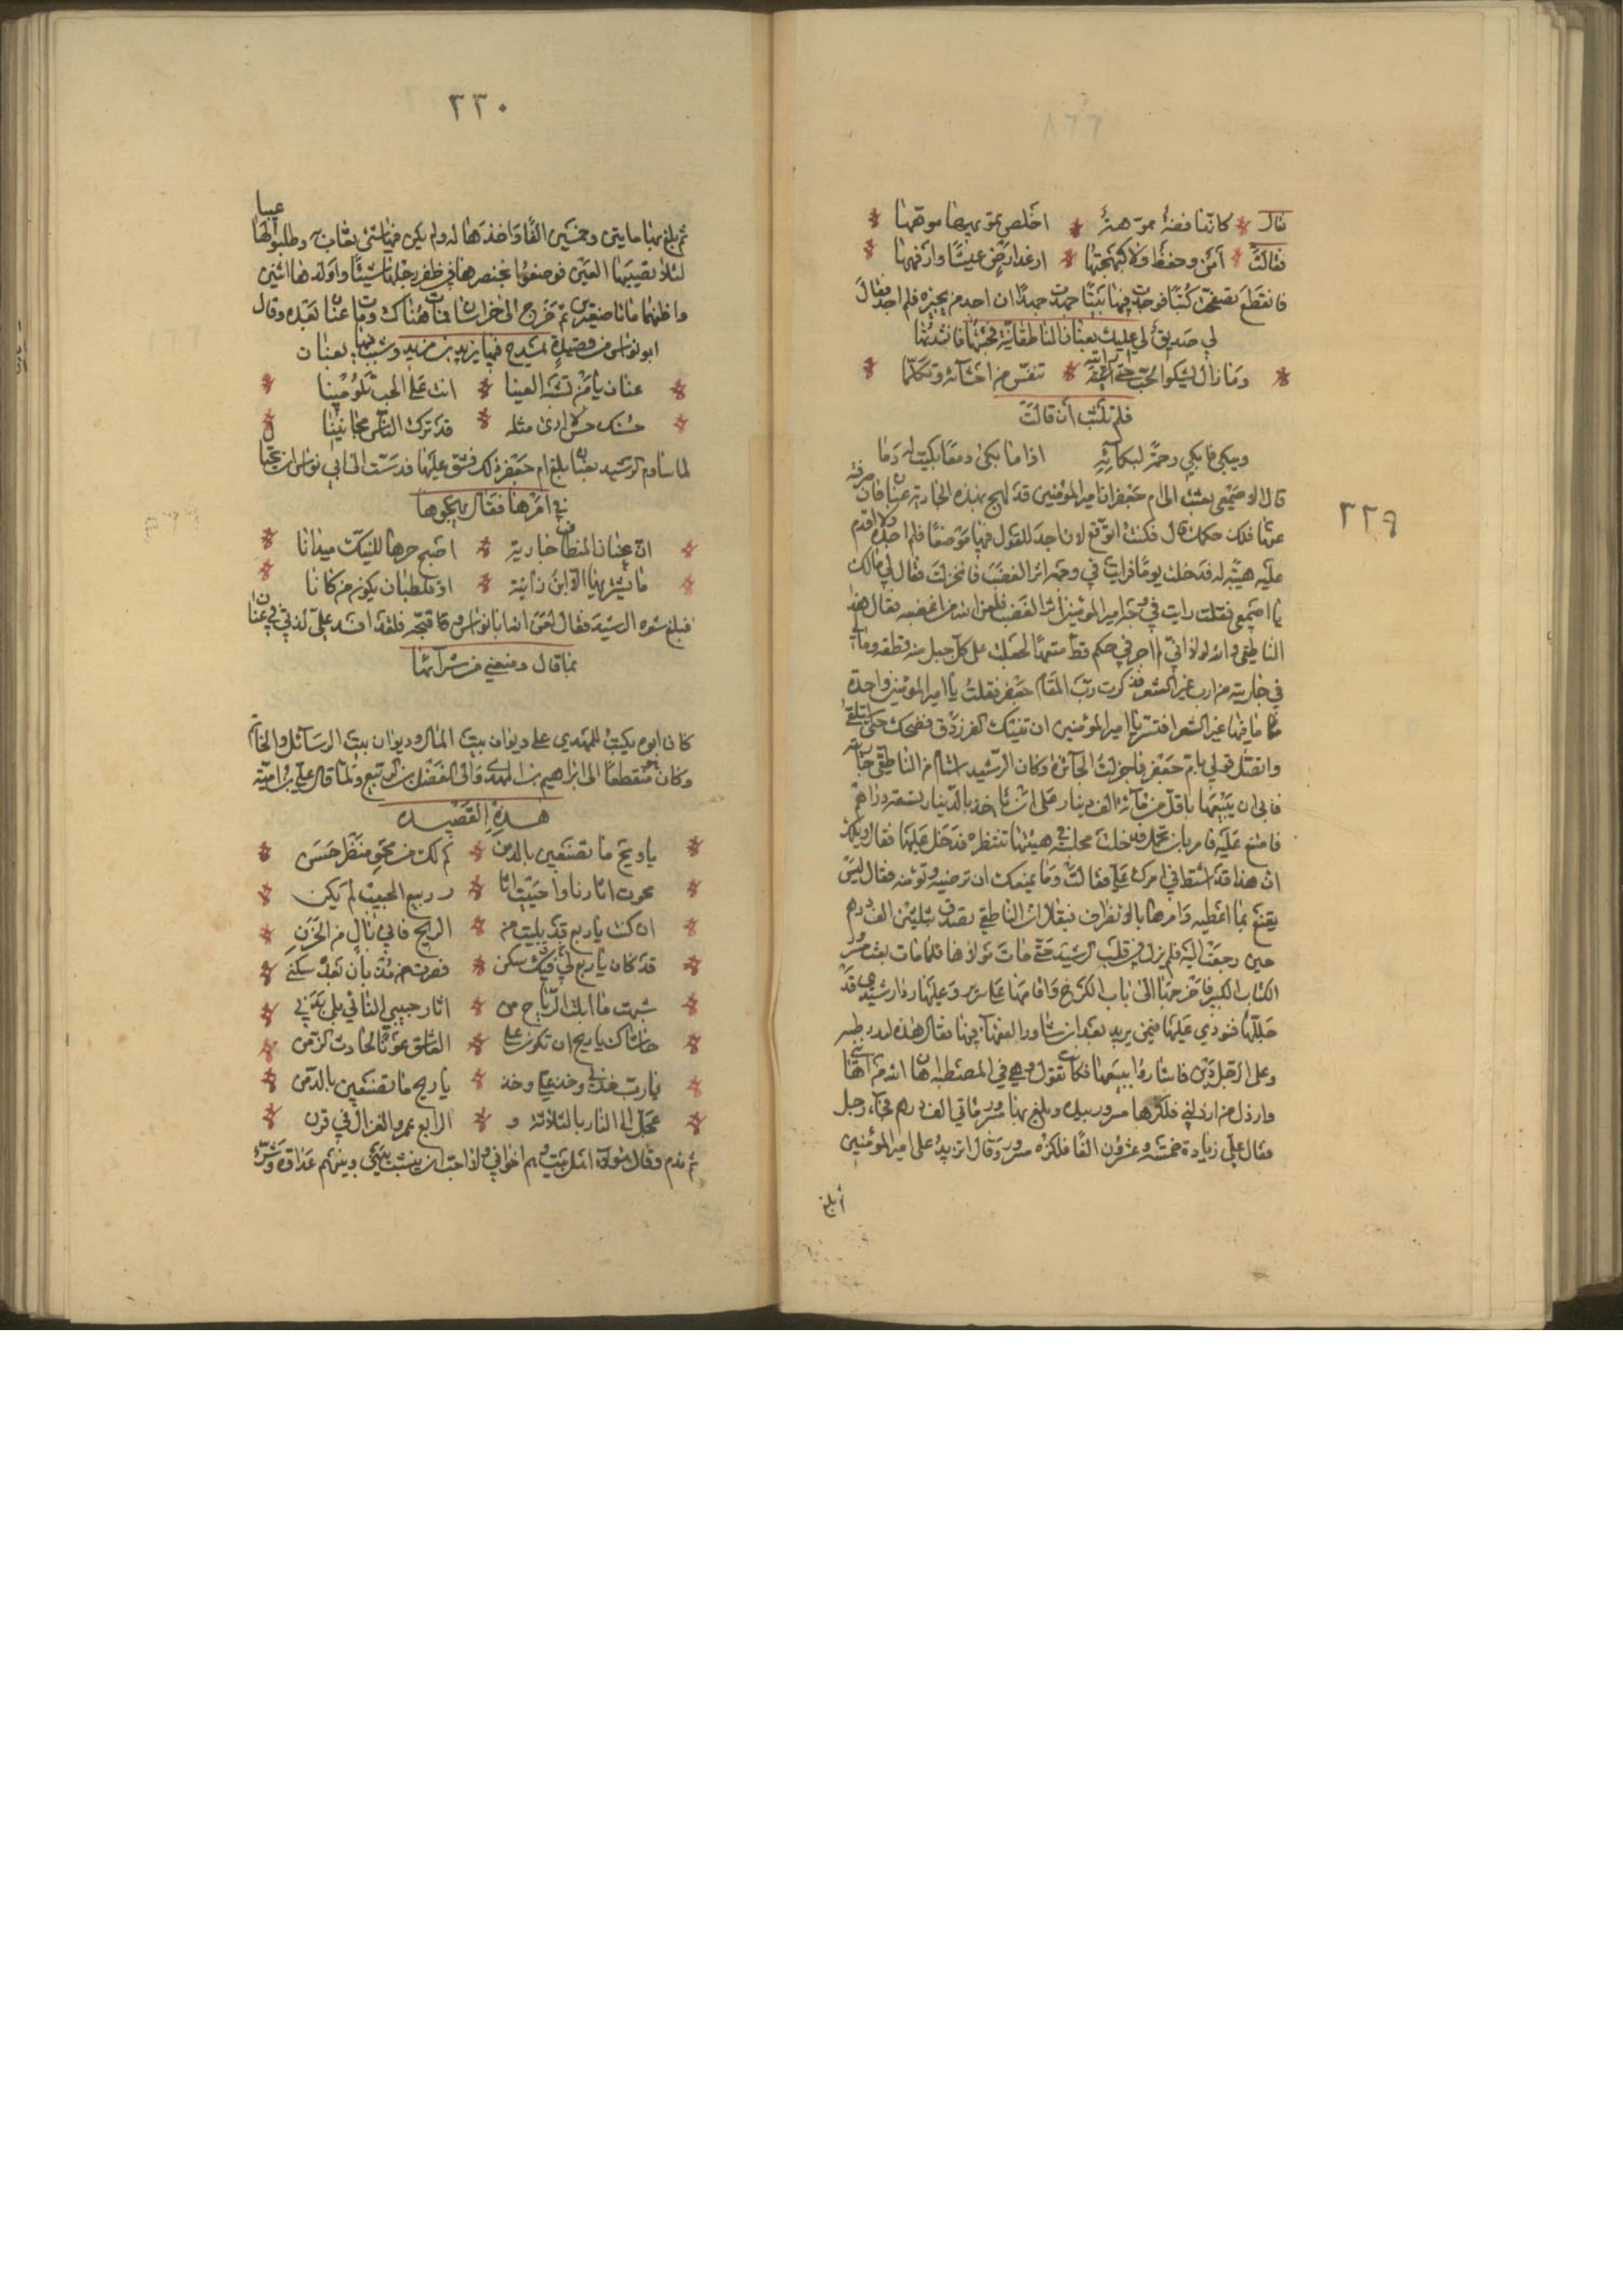 ٢٢٩
قال كانها فضة مموهة اخلص تمويهها موهها
فقالت امن وحفظ ولا كبهجتها ارغد ارض عيشا وارفهها
فانقطع تصفحت كتبا فوجدت فيها بيتا جهدت جهدا ان اجد من يجيزه فلم اجد فقال
لي صديق لي عليك بعنان الناطفانية فجئتها فانشدتها
وما زال يشكو الحب حتى رايته تنفس من احشائه وتكلما
فلم تلبث ان قالت
ويبكي فابكي رحمة لبكائه اذا ما بكى دمعا بكيت له دما
قال الاصمعي بعثت الى ام جعفر ان امير المؤمنين قد لهج بهذه الجارية عنان فان صرفته
عنها فلك حكمك قال فكنت اتوقع لان اجد للقول فيها موضعا فلم اجده ولا اقدم
عليه هيبة له فدخلت يوما فرايت في وجهه اثر الغضب فانخزلت فقال لي مالك
يا اصمعي فقلت رايت في وجه امير المؤمنين اثر الغضب فلعن الله من اغضبه فقال هذا
الناطفي والله لولا اني لم اجر في حكم قط متعمدا لجعلت على كل جبل منه قطعة وما
في جاريته من ارب غير الشعر فذكرت ام جعفر فقلت يا امير المؤمنين واحدة
ما فيها غير الشعر افتسر يا امير المؤمنين ان تنيك الفرزدق فضحك حتى استلقى
واتصل قولي بام جعفر فاجزلت الجائزة وكان الرشيد استام من الناطفي جاريته
فابى ان يبيعها باقل من مائة الف دينار على ان ياخذ بالدينار سبعة دراهم
فامتنع عليه فامر بان تحمل فدخلت مجلسه في هيئتها تنتظره فدخل عليها فقال ويلك
ان هذا قد اشتط في امرك علي فقالت وما يمنعك ان ترضيه وتوئسه فقال ليس
يقنع بما اعطيه وامرها بالانصراف فيقال ان الناطفي تصدق بثلثين الف درهم
حين رجعت اليه فلم يزل في قلب الرشيد حتى مات مولاها فلما مات بعث مسرور
الكتاب الكبير فاخرجها الى باب الكرخ واقامها على سرير وعليها رداء رشيدي قد
جللها فنودي عليها فيمن يريد بعد ان شاور الفقهاء فيها فقال هذه لبد رطبه
وعلى الرجل دين فاشاروا ببيعها فكانت تقول وهي في المصطبة اهان الله من اهانني
وارذل من ارذلني فلكزها مسرور بيده وبلغ بها مسرور مائتي الف درهم فجاء رجل
فقال علي زيادة خمسة وعشرون الفا فلكزه مسرور وقال اتزيد على امير المؤمنين
ثم بلغ
٢٣٠
ثم بلغ بها مايتين وخمسين الفا واخذها له ولم يكن فيها شيء يعاب وطلبوا لها عيبا
لئلا تصيبها العين فوضعوا بخنصرها في ظفر رجلها شيئا واولدها اثنين
واظنهما ماتا صغيرين ثم خرج الى خراسان فمات هناك وماتت عنان بعده وقال
ابو نواس من قصيدة يمدح فيها يزيد بن مزيد وشبب فيها بعنان
عنان يا من تشبه العينا انت على الحب تلومينا
حسنك حسن لا ارى مثله قد ترك الناس مجانينا
لما ساوم الرشيد بعنان بلغ ام جعفر ذلك فشق عليها فدست الى ابي نواس ان يحتال
في امرها فقال يهجوها
ان عنان النطاف جارية اصبح حرها للنيك ميدانا
ما يشتريها الا ابن زانية او قلطبان يكون من كانا
فبلغ شعره الرشيد فقال لعن الله ابا نواس وقاتحه فلقد افسد علي لذتي في عنان
بما قال ومنعني من شرائها
كان ابوه يكتب للمهدي على ديوان بيت المال وديوان بيت الرسائل والخاتم
وكان منقطعا الى ابراهيم بن المهدي والى الفضل بن الربيع ولما قال علي بن امية
هذه القصيده
يا ريح ما تصنعين بالدمن كم لك من محو منظر حسن
محوت اثارنا واحييت اثا ر ربيع الحبيب لم يكن
ان كنت يا ربع قد بليت من الريح فاني بال من الحزن
قد كان يا ربع لي فيك سكن فصرت مذ بان بعد سكني
شبهت ما ابلت الرياح من اثار حبيبي الناي بلى بدني
حاشاك يا ريح ان تكون على العاشق عونا لحادث الزمن
يا رب خذ لي وخذ علي وخذ يا ريح ما تصنعين بالدمن
عجل الى النار بالثلاثة و الرابع عمرو الغزال في قرن
ثم ندم وقال هؤلاء اهل بيت وهم اخواني ولا احب ان ينشب بيني وبينهم عداوة وشر